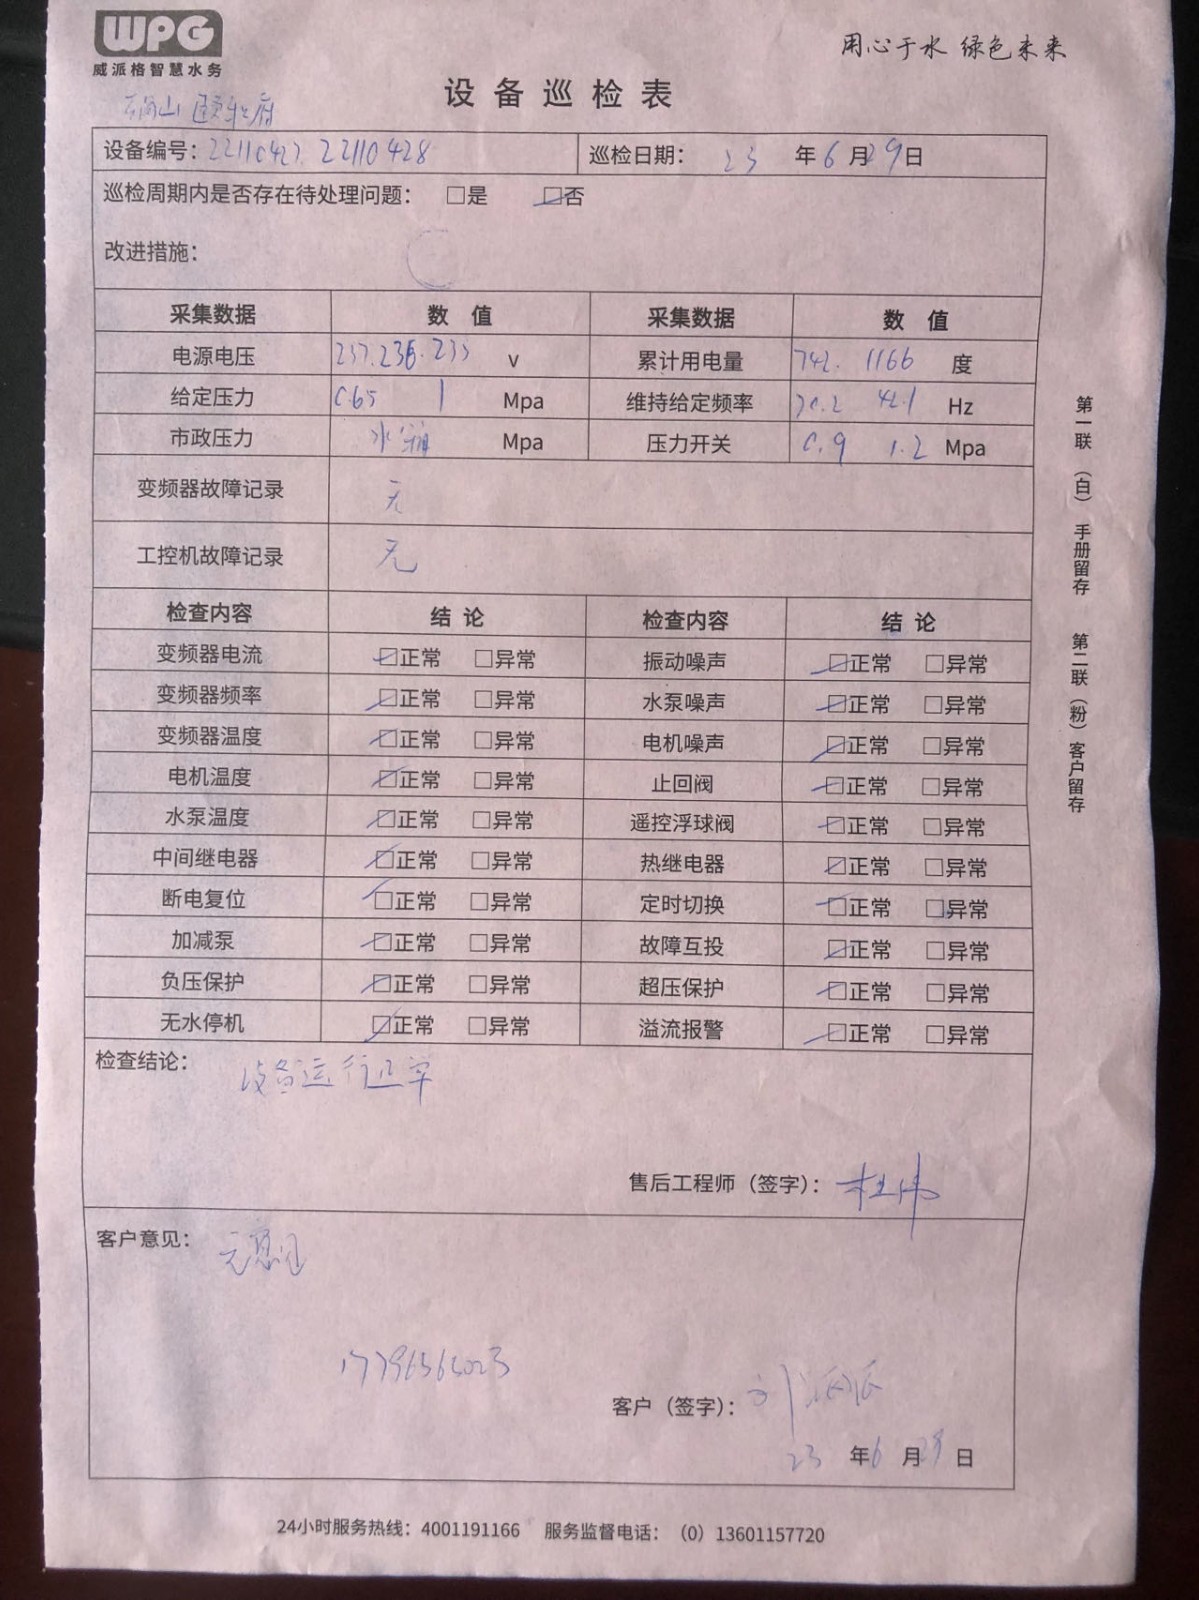 WPG
威派格智慧水务
用心于水 绿色未来
设备巡检表
设备编号：22110427. 22110428 巡检日期： 23 年 6 月 29 日
巡检周期内是否存在待处理问题： □是 ☑否
改进措施：
采集数据 数 值 采集数据 数 值
电源电压 237.236.233 V 累计用电量 742. 1166 度
给定压力 0.65 1 Mpa 维持给定频率 42.1 Hz
市政压力 水箱 Mpa 压力开关 0.9 1.2 Mpa
变频器故障记录 无
工控机故障记录 无
检查内容 结 论 检查内容 结 论
变频器电流 ☑正常 □异常 振动噪声 ☑正常 □异常
变频器频率 ☑正常 □异常 水泵噪声 ☑正常 □异常
变频器温度 ☑正常 □异常 电机噪声 ☑正常 □异常
电机温度 ☑正常 □异常 止回阀 ☑正常 □异常
水泵温度 ☑正常 □异常 遥控浮球阀 ☑正常 □异常
中间继电器 ☑正常 □异常 热继电器 ☑正常 □异常
断电复位 ☑正常 □异常 定时切换 ☑正常 □异常
加减泵 ☑正常 □异常 故障互投 ☑正常 □异常
负压保护 ☑正常 □异常 超压保护 ☑正常 □异常
无水停机 ☑正常 □异常 溢流报警 ☑正常 □异常
检查结论： 设备运行正常
售后工程师（签字）： 杜伟
客户意见： 无意见
客户（签字）： 刘
23 年 6 月 29 日
24小时服务热线：4001191166 服务监督电话：（0）13601157720
第一联（白）手册留存 第二联（粉）客户留存